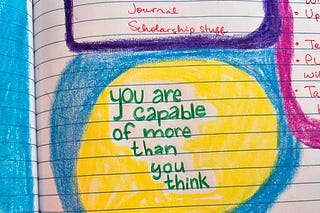 Journal
Scholarship stuff
you are
capable
of more
than
you
think